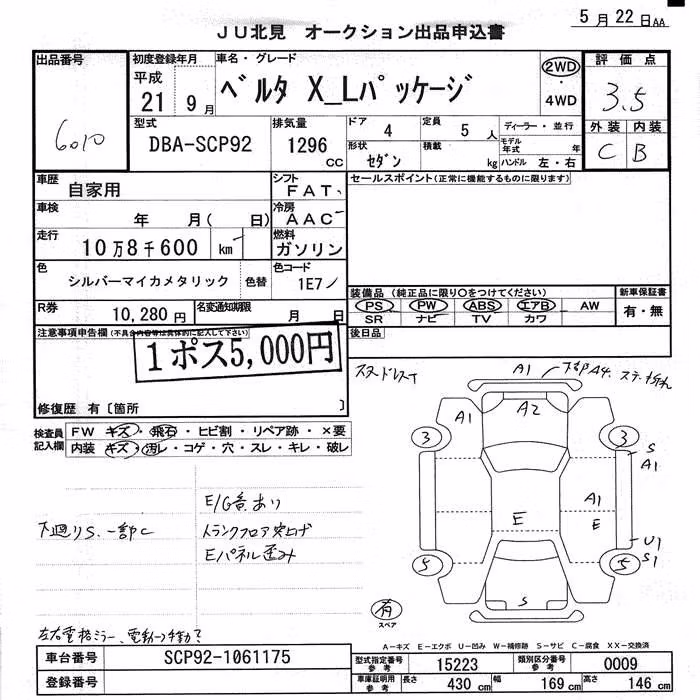 5月22日AA
JU北見 オークション出品申込書
出品番号 初度登録年月 車名・グレード 評価点
平成 21 9月 ベルタ X_Lパッケージ 2WD ・ 4WD 3.5
6010
型式 排気量 ドア 4 定員 5人 ディーラー・並行 外装 内装
DBA-SCP92 1296cc 形状 セダン 積載 kg モデル年式 年 ハンドル 左・右 C B
車歴 自家用 シフト FAT セールスポイント(正常に機能するものに限ります)
車検 年 月( 日) 冷房 AAC
走行 10万8千600 km 燃料 ガソリン
色 シルバーマイカメタリック 色替 色コード 1E7
装備品 (純正品に限り〇をつけてください) 新車保証書
R券 10,280円 名変通知期限 月 日 PS PW ABS エアB AW 有・無
SR ナビ TV カワ
注意事項申告欄(不具合内容等は具体的に記入して下さい) 後日品
1ポス5,000円
修復歴 有〔箇所 〕
検査員記入欄 FW キズ・飛石・ヒビ割・リペア跡・×要
内装 キズ・汚レ・コゲ・穴・スレ・キレ・破レ
A1 A4
A1 A2
3 3 S A1
E/G音あり
下廻りS、一部C トランクフロア突上げ E A1 E
Eパネル歪み
U1 S1
5 5
S
有 スペア
A-キズ E-エクボ U-凹み W-補修跡 S-サビ C-腐食 XX-交換済
車台番号 SCP92-1061175 型式指定番号 参考 15223 類別区分番号 参考 0009
登録番号 車庫証明用 参考 長さ 430cm 幅 169cm 高さ 146cm